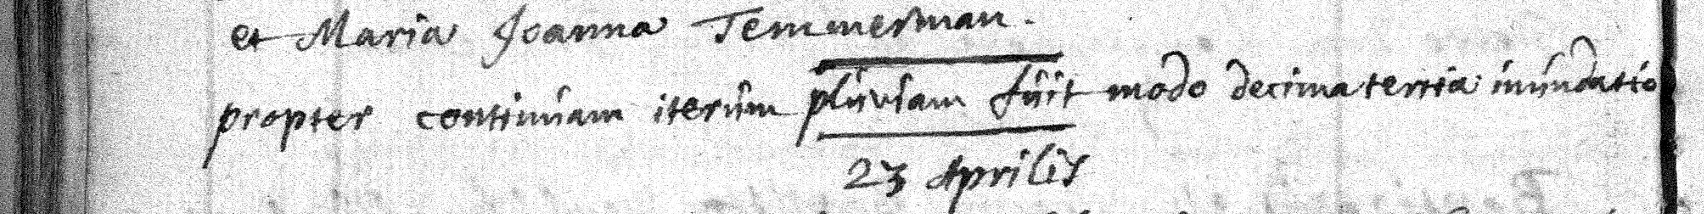 et Maria Joanna Temmerman.
propter continuam iterum pluviam fuit modo decima tertia inundatio
23 Aprilis